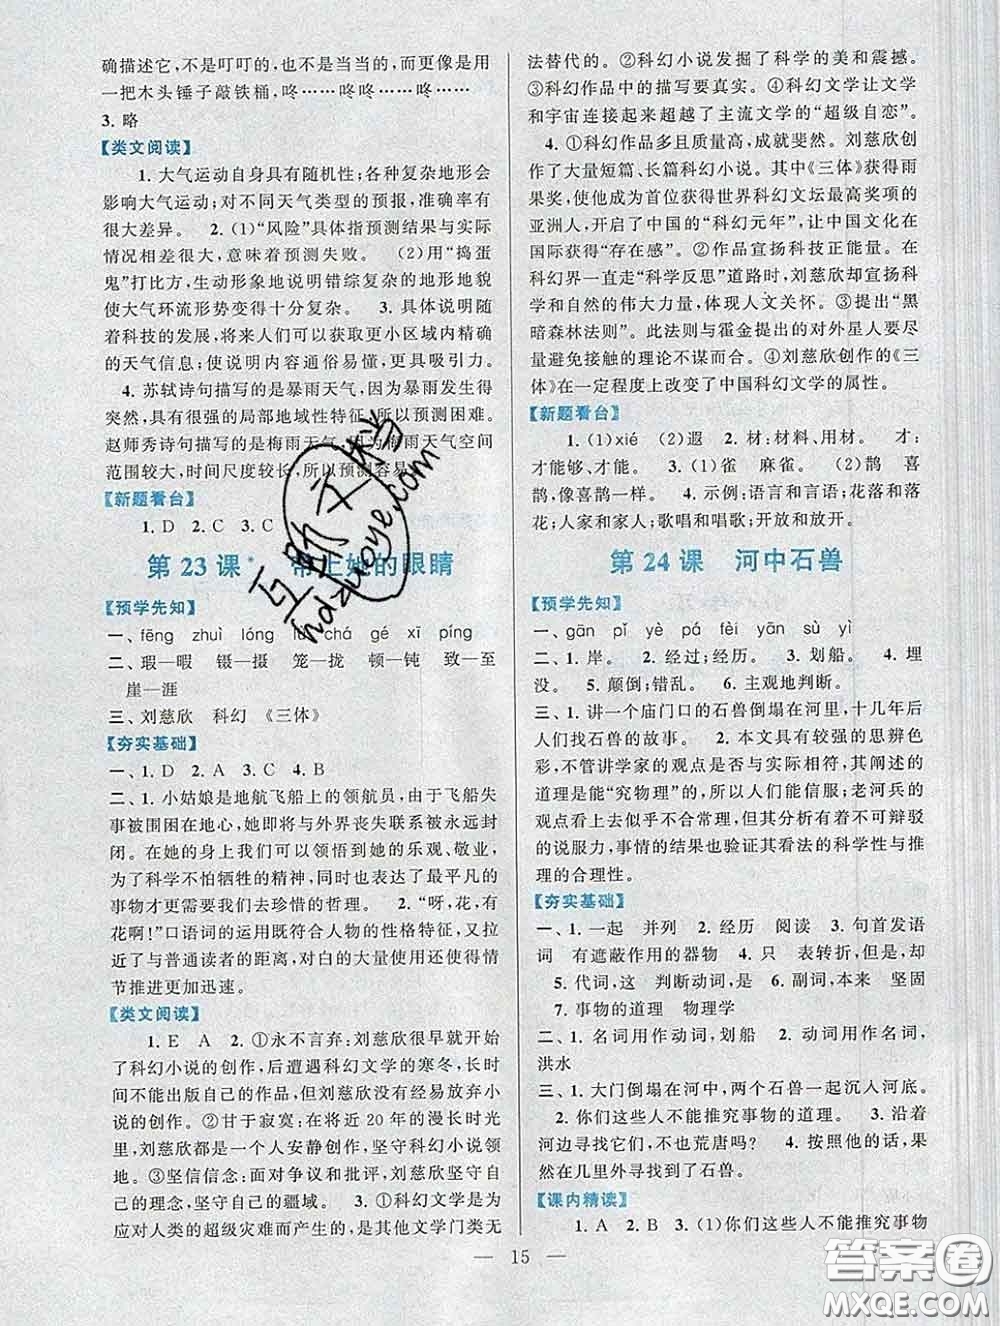 确描述它,不是叮叮的,也不是当当的,而像是用
一把木头锤子敲铁桶,咚……咚咚……咚……
3. 略
【类文阅读】
1. 大气运动自身具有随机性;各种复杂地形会
影响大气运动;对不同天气类型的预报,准确率有
很大差异。 2. (1)“风险”具体指预测结果与实际
情况相差很大,意味着预测失败。 (2)用“捣蛋
鬼”打比方,生动形象地说明错综复杂的地形地貌
使大气环流形势变得十分复杂。 3. 具体说明随
着科技的发展,将来人们可以获取更小区域内精确
的天气信息;使说明内容通俗易懂,更具吸引力。
4. 苏轼诗句描写的是暴雨天气,因为暴雨发生得
突然,具有很强的局部地域性特征,所以预测困难。
赵师秀诗句描写的是梅雨天气,因为梅雨天气空间
范围较大,时间尺度较长,所以预测容易
【新题看台】
1. D 2. C 3. C
第 23 课* 带上她的眼睛
【预学先知】
一、fēng zhuì lóng chá gé xī píng
二、瑕—暇 镊—摄 笼—拢 顿—钝 致—至
崖—涯
三、刘慈欣 科幻 《三体》
【夯实基础】
一、1. D 2. A 3. C 4. B
二、1. 小姑娘是地航飞船上的领航员,由于飞船失
事被围困在地心,她即将与外界丧失联系被永远封
闭。在她的身上我们可以领悟到她的乐观、敬业,
为了科学不怕牺牲的精神,同时也表达了最平凡的
事物才更值得我们去珍惜的哲理。 2. “呀,花,有
花啊!”口语词的运用既符合人物的性格特征,又拉
近了与普通读者的距离,对白的大量使用还使得情
节推进更加迅速。
【类文阅读】
1. E A 2. ①永不言弃:刘慈欣很早就开始了
科幻小说的创作,后遭遇科幻文学的寒冬,长时
间不能出版自己的作品,但刘慈欣没有轻易放弃小
说的创作。②甘于寂寞:在将近 20 年的漫长时光
里,刘慈欣都是一个人安静创作,坚守科幻小说领
地。③坚信信念:面对争议和批评,刘慈欣坚守自
己的理念,坚守自己的疆域。 3. ①科幻文学是为
应对人类的超级灾难而产生的,是其他文学门类无
法替代的。②科幻小说发掘了科学的美和震撼。
③科幻作品中的描写要真实。④科幻文学让文学
和宇宙连接起来超越了主流文学的“超级自恋”。
4. ①科幻作品多且质量高,成就斐然。刘慈欣创
作了大量短篇、长篇科幻小说。其中《三体》获得雨
果奖,使他成为首位获得世界科幻文坛最高奖项的
亚洲人,开启了中国的“科幻元年”,让中国文化在
国际获得“存在感”。②作品宣扬科技正能量。在
科幻界一直走“科学反思”道路时,刘慈欣却宣扬科
学和自然的伟大力量,体现人文关怀。③提出“黑
暗森林法则”。此法则与霍金提出的对外星人要尽
量避免接触的理论不谋而合。④刘慈欣创作的《三
体》在一定程度上改变了中国科幻文学的属性。
【新题看台】
1. (1)xié (2)遐 2. 材:材料、用材。 才:
才能够、才能。 3. (1)雀 麻雀。 (2)鹊 喜
鹊,像喜鹊一样。 4. 示例:语言和言语;花落和落
花;人家和家人;歌唱和唱歌;开放和放开。
第 24 课 河中石兽
【预学先知】
一、gān pǐ yè pá fèi yān sù yì
二、1. 岸。 2. 经过;经历。 3. 划船。 4. 埋
没。 5. 颠倒;错乱。 6. 主观地判断。
三、1. 讲一个庙门口的石兽倒塌在河里,十几年后
人们找石兽的故事。 2. 本文具有较强的思辨色
彩,不管讲学家的观点是否与实际相符,其阐述的
道理是能“究物理”的,所以人们能信服;老河兵的
观点看上去似乎不合常理,但其分析有着不可辩驳
的说服力,事情的结果也验证其看法的科学性与推
理的合理性。
【夯实基础】
一、1. 一起 并列 2. 经历 阅读 3. 句首发语
词 有遮蔽作用的器物 4. 只 表转折,但是,却
5. 代词,这 判断动词,是 6. 副词,本来 坚固
7. 事物的道理 物理学
二、1. 名词用作动词,划船 2. 动词用作名词,
洪水
三、1. 大门倒塌在河中,两个石兽一起沉入河底。
2. 你们这些人不能推究事物的道理。 3. 沿着
河边寻找它们,不也荒唐吗? 4. 按照他的话,果
然在几里外寻找到了石兽。
【课内精读】
1. A 2. B 3. (1)你们这些人不能推究事物
— 15 —
互助文本学
hdzuoye.com
答案圈
MXQE.COM